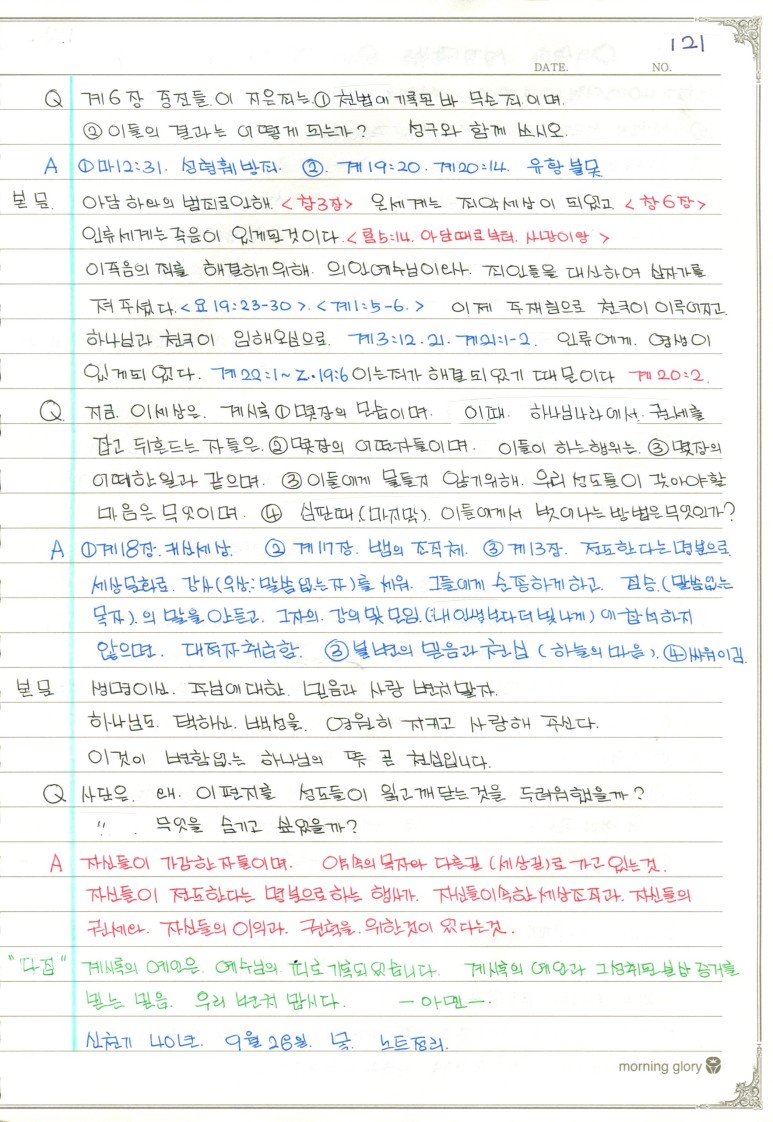 121
DATE. NO.
Q 계6장 증전들이 지은죄는 ① 천법에 기록된바 무슨죄이며.
② 이들의 결과는 어떻게 되는가? 성구와 함께 쓰시오.
A ① 마12:31. 성령훼방죄. ②. 계19:20. 계20:14. 유황불못
본문. 아담 하와의 범죄로인해. <창3장> 온세계는 죄악세상이 되었고 <창6장>
인류세계는 죽음이 있게된것이다. <롬5:14. 아담때로부터. 사망이왕>
이죽음의 죄를 해결하기위해. 의인예수님이오사. 죄인들을 대신하여 십자가를
져 주셨다. <요19:23-30>. <계1:5-6.> 이제 주재림으로 천국이 이루어지고.
하나님과 천국이 임해오심으로. 계3:12. 21. 계21:1-2. 인류에게. 영생이
있게되었다. 계22:1~2. 19:6 이는죄가 해결되었기 때문이다 계20:2.
Q. 지금. 이세상은. 계시록 ① 몇장의 모습이며. 이때. 하나님나라에서. 권세를
잡고 뒤흔드는 자들은. ② 몇장의 어떤자들이며. 이들이 하는행위는. ③ 몇장의
어떠한일과 같으며. ③ 이들에게 물들지 않기위해. 우리 성도들이 갖아야할
마음은 무엇이며. ④ 심판때.(마지막). 이들에게서 벗어나는 방법은무엇인가?
A ① 계18장. 귀신세상. ② 계17장. 뱀의 조직체. ③ 계13장. 전도한다는명분으로.
세상문화로. 강사(우상: 말씀없는자)를 세워. 그들에게 순종하게하고. 짐승.(말씀없는
목자).의 말을안듣고. 그자의. 강의 및 모임.(내인생보다더빛나게)에 참석하지
않으면. 대적자취급함. ③ 불변의 믿음과 천심 (하늘의 마음). ④ 싸워이김.
본문 생명이신. 주님에대한. 믿음과 사랑 변치말자.
하나님도. 택하신. 백성을. 영원히 지키고 사랑해 주신다.
이것이 변함없는 하나님의 뜻 곧 천심입니다.
Q 사단은. 왜. 이편지를 성도들이 읽고깨닫는것을 두려워했을까?
〃. 무엇을 숨기고 싶었을까?
A 자신들이 가감한자들이며. 약속의목자와 다른길(세상길)로 가고있는것.
자신들이 전도한다는 명분으로하는 행사가. 자신들이속한세상조직과. 자신들의
권세와. 자신들의 이익과. 권력을. 위한것이 있다는것.
"다짐" 계시록의 예언은. 예수님의. 피로 기록되었습니다. 계시록의 예언과 그성취된실상 증거를
믿는 믿음. 우리 변치 맙시다. ㅡ아멘ㅡ.
신천기 40년. 9월 28일. 목. 노트정리.
morning glory